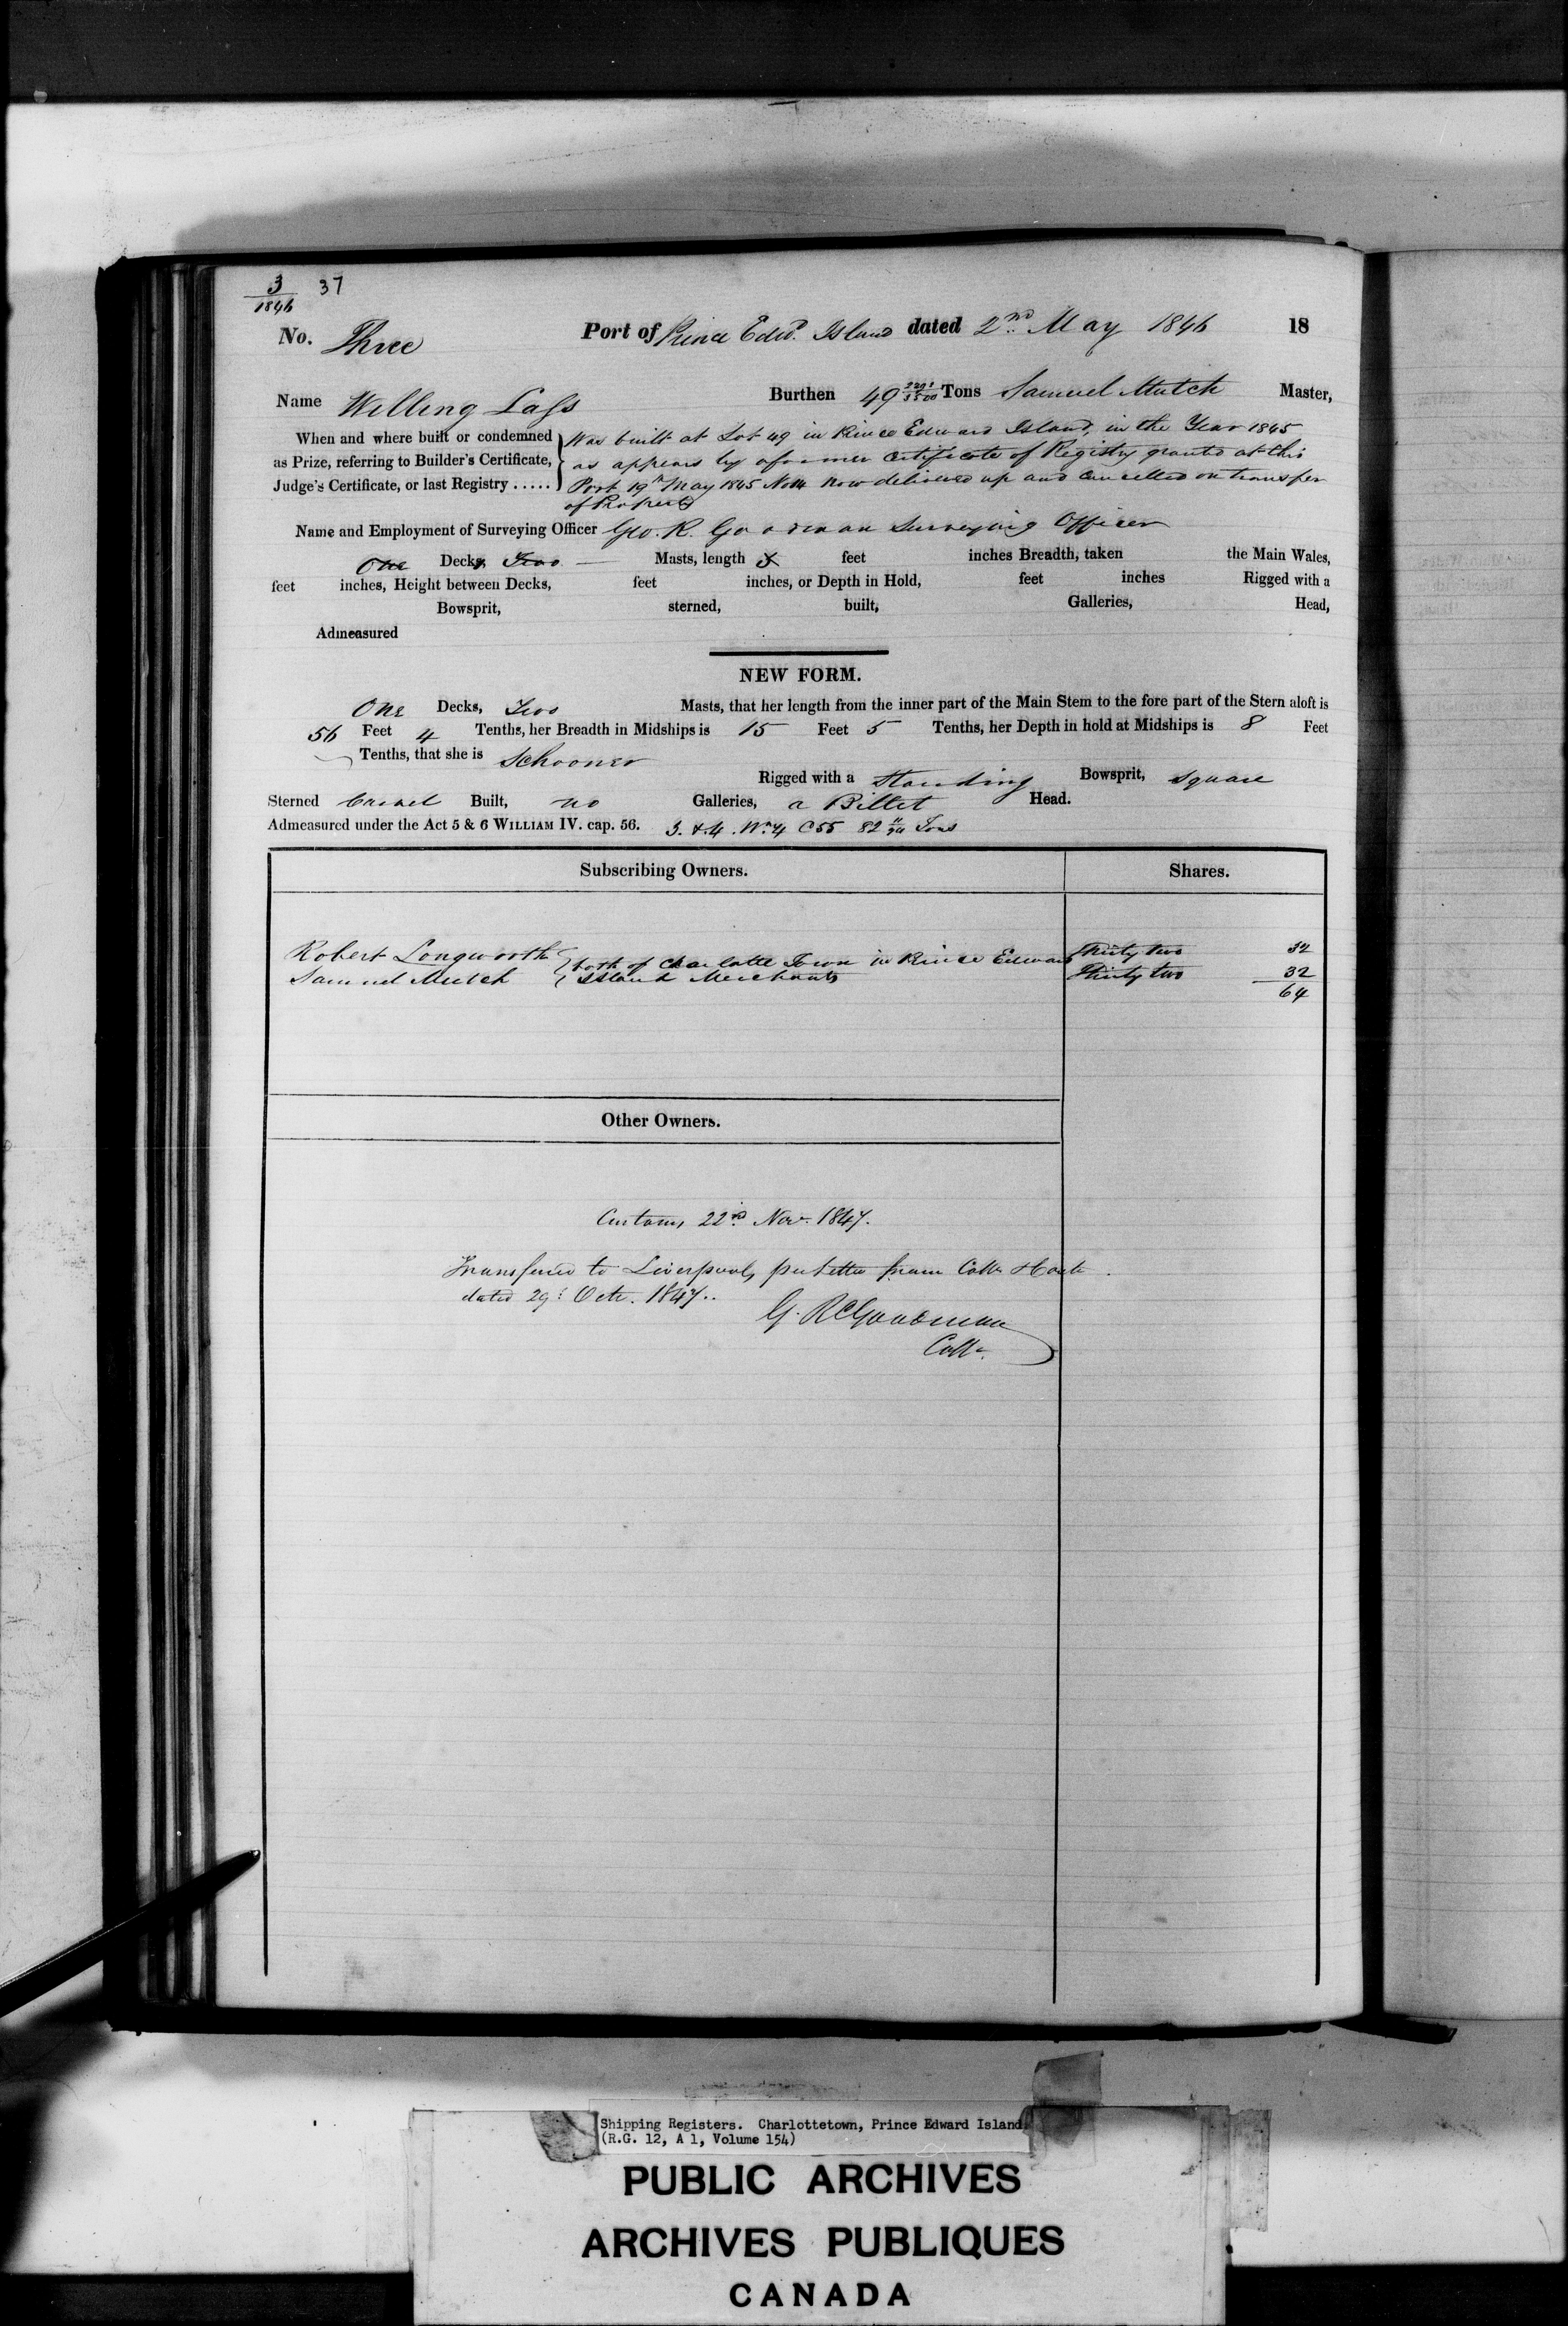 3 37
1846
No. Three Port of Prince Edwd. Island dated 2nd May 1846 18
Name Willing Lass Burthen 49 Tons Samuel Mutch Master,
When and where built or condemned Was built at Lot 49 in Prince Edward Island, in the Year 1845
as Prize, referring to Builder's Certificate, as appears by a former Certificate of Registry granted at this
Judge's Certificate, or last Registry ..... Port 19th May 1845 No 14 now delivered up and Cancelled on transfer
of Property
Name and Employment of Surveying Officer Geo. R. Goodman Surveying Officer
One Decks, Two Masts, length feet inches Breadth, taken the Main Wales,
feet inches, Height between Decks, feet inches, or Depth in Hold, feet inches Rigged with a
Bowsprit, sterned, built, Galleries, Head,
Admeasured
NEW FORM.
One Decks, Two Masts, that her length from the inner part of the Main Stem to the fore part of the Stern aloft is
56 Feet 4 Tenths, her Breadth in Midships is 15 Feet 5 Tenths, her Depth in hold at Midships is 8 Feet
Tenths, that she is Schooner
Rigged with a Standing Bowsprit, Square
Sterned Carvel Built, no Galleries, a Billet Head.
Admeasured under the Act 5 & 6 WILLIAM IV. cap. 56. 3. & 4. Wm 4 C 55 82 Tons
Subscribing Owners. Shares.
Robert Longworth both of Charlotte Town in Prince Edward Thirty two 32
Samuel Mutch Island Merchants Thirty two 32
64
Other Owners.
Customs 22nd Novr. 1847.
Transferred to Liverpool, per letter from Collr
dated 29th Octr. 1847..
G. R. Goodman
Collr.
Shipping Registers. Charlottetown, Prince Edward Island.
(R.G. 12, A 1, Volume 154)
PUBLIC ARCHIVES
ARCHIVES PUBLIQUES
CANADA